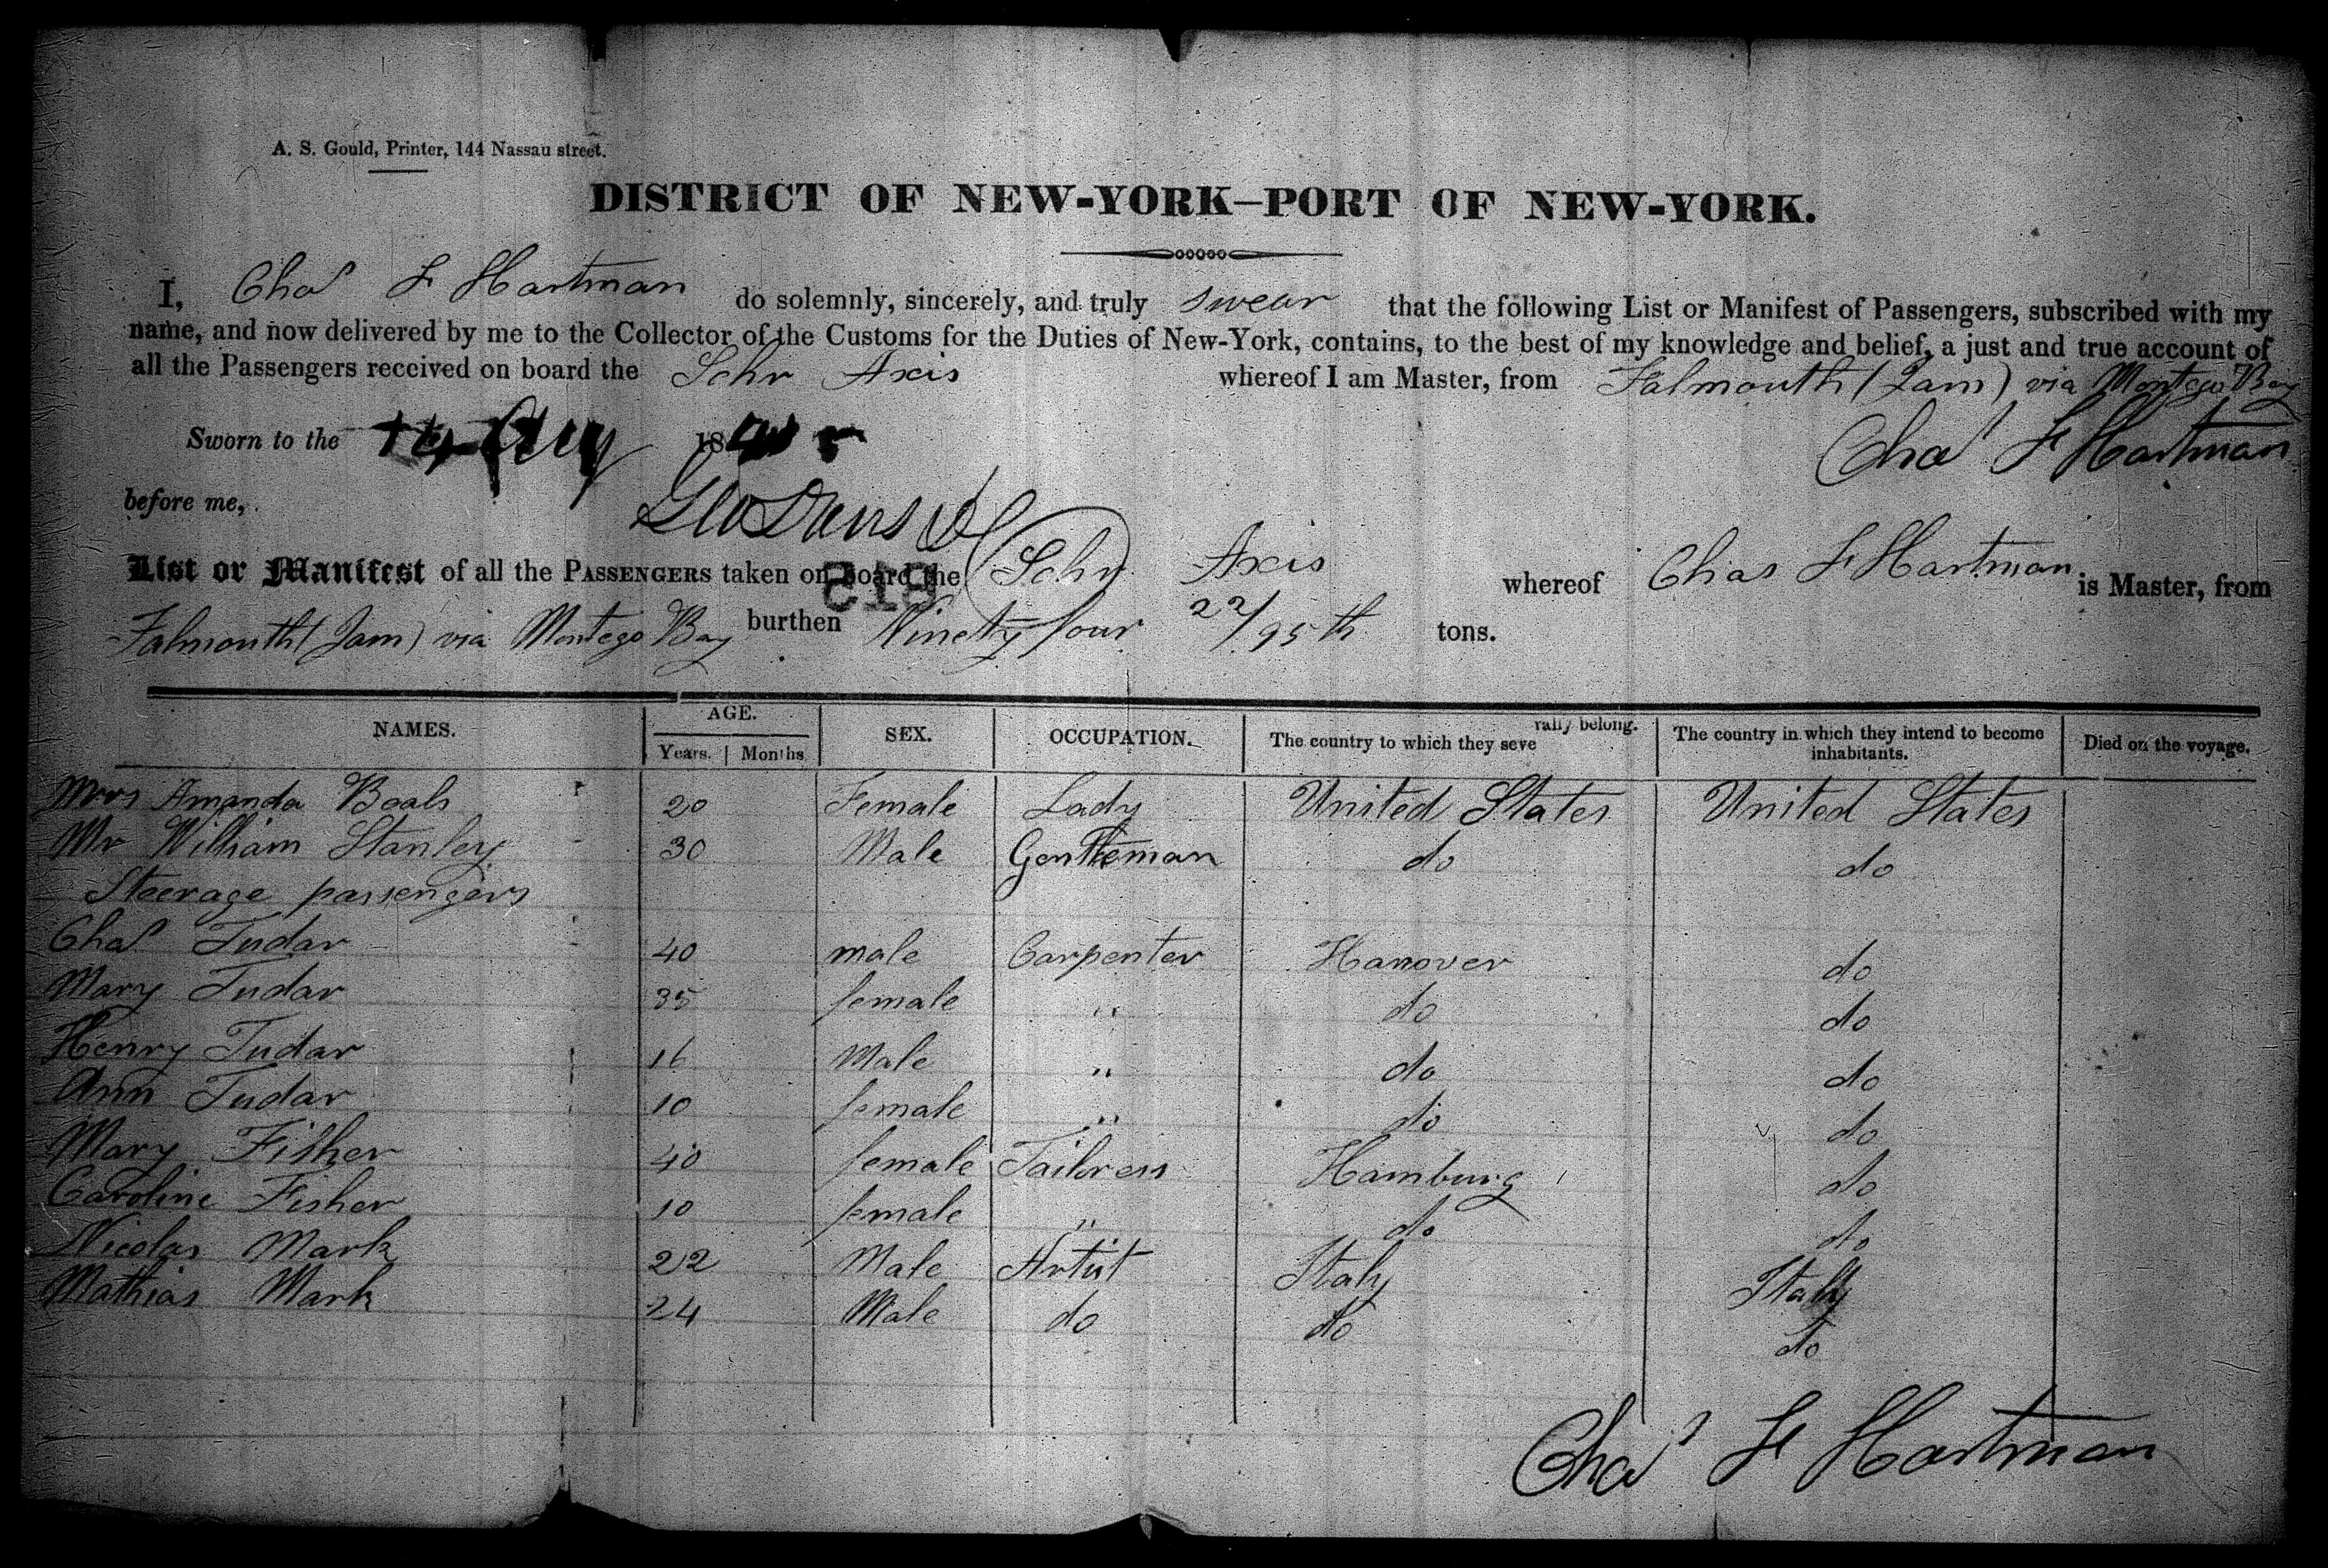 A. S. Gould, Printer, 144 Nassau street.
DISTRICT OF NEW-YORK—PORT OF NEW-YORK.
I, Chas F Hartman do solemnly, sincerely, and truly swear that the following List or Manifest of Passengers, subscribed with my
name, and now delivered by me to the Collector of the Customs for the Duties of New-York, contains, to the best of my knowledge and belief, a just and true account of
all the Passengers received on board the Schr Axis whereof I am Master, from Falmouth (Jam) via Montego Bay
Sworn to the Aug 18
Chas F Hartman
before me,
List or Manifest of all the PASSENGERS taken on board the Schr Axis whereof Chas F Hartman is Master, from
819
Falmouth (Jam) via Montego Bay burthen Ninety four 22/95th tons.
NAMES. AGE. SEX. OCCUPATION. The country to which they seve rally belong. The country in which they intend to become inhabitants. Died on the voyage.
Years. Months
Mrs Amanda Boals 20 Female Lady United States United States
Mr William Stanley 30 Male Gentleman do do
Steerage passengers
Chas Tudar 40 male Carpenter Hanover do
Mary Tudar 35 female " do do
Henry Tudar 16 Male " do do
Ann Tudar 10 female " do do
Mary Fisher 40 female Tailoress Hamburg do
Caroline Fisher 10 female " do do
Nicolas Mark 22 Male Artist Italy Italy
Mathias Mark 24 Male do do do
Chas F Hartman